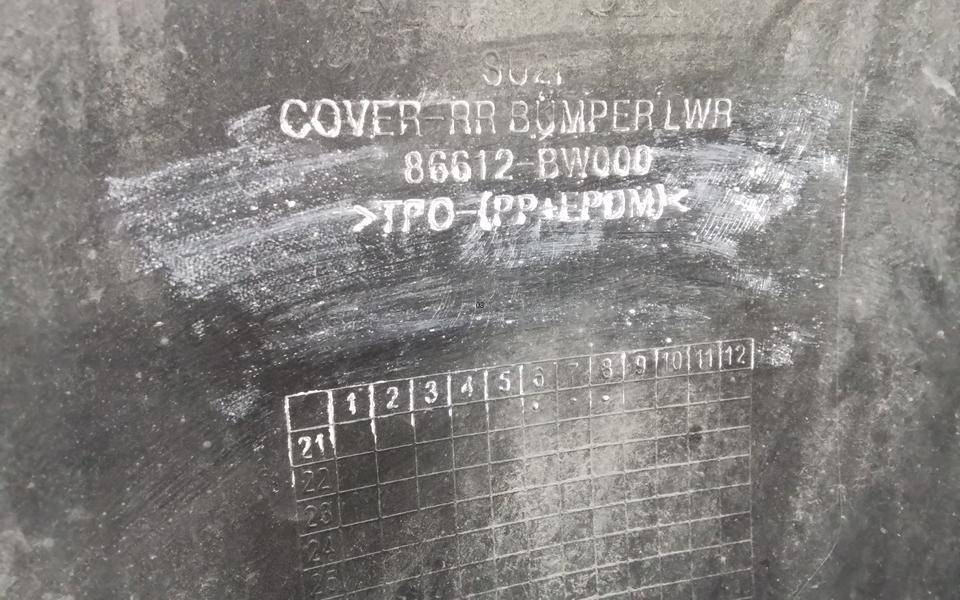 COVER-RR BUMPER LWR
86612-BW000
>TPO-(PP+EPDM)<
1 2 3 4 5 6 7 8 9 10 11 12
21
22
23
24
25